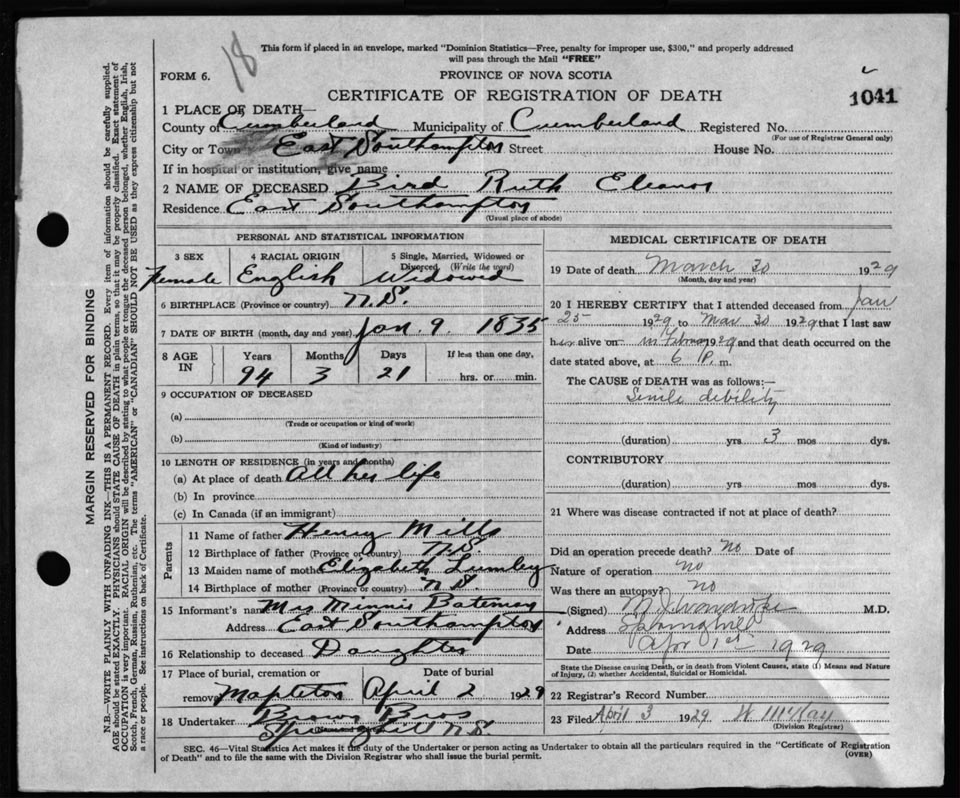 18
This form if placed in an envelope, marked "Dominion Statistics—Free, penalty for improper use, $300," and properly addressed
will pass through the Mail "FREE"
FORM 6.
PROVINCE OF NOVA SCOTIA
CERTIFICATE OF REGISTRATION OF DEATH
1041
1 PLACE OF DEATH—
County of Cumberland Municipality of Cumberland Registered No.
(For use of Registrar General only)
City or Town East Southampton Street House No.
If in hospital or institution, give name
2 NAME OF DECEASED Bird Ruth Eleanor
Residence East Southampton
(Usual place of abode)
PERSONAL AND STATISTICAL INFORMATION
3 SEX 4 RACIAL ORIGIN 5 Single, Married, Widowed or
Divorced (Write the word)
Female English Widowed
6 BIRTHPLACE (Province or country) N.S.
7 DATE OF BIRTH (month, day and year) Jan. 9. 1835
8 AGE IN Years Months Days If less than one day,
94 3 21 hrs. or min.
9 OCCUPATION OF DECEASED
(a)
(Trade or occupation or kind of work)
(b)
(Kind of industry)
10 LENGTH OF RESIDENCE (in years and months)
(a) At place of death All her life
(b) In province
(c) In Canada (if an immigrant)
Parents
11 Name of father Henry Mills
12 Birthplace of father (Province or country) N.S.
13 Maiden name of mother Elizabeth Lumley
14 Birthplace of mother (Province or country) N.S.
15 Informant's name Mrs Minnie Bateman
Address East Southampton
16 Relationship to deceased Daughter
17 Place of burial, cremation or Date of burial
removal Mapleton April 2 1929
18 Undertaker Brown Bros
Springhill N.S.
MEDICAL CERTIFICATE OF DEATH
19 Date of death March 30 1929
(Month, day and year)
20 I HEREBY CERTIFY that I attended deceased from Jan
25 1929 to Mar 30 1929 that I last saw
her alive on in Febru 1929 and that death occurred on the
date stated above, at 6 P. m.
The CAUSE of DEATH was as follows:—
Senile debility
(duration) yrs 3 mos dys.
CONTRIBUTORY
(duration) yrs mos dys.
21 Where was disease contracted if not at place of death?
Did an operation precede death? No Date of
Nature of operation no
Was there an autopsy? no
(Signed) M.D.
Address Springhill
Date Apr 1st 1929
State the Disease causing Death, or in death from Violent Causes, state (1) Means and Nature
of Injury, (2) whether Accidental, Suicidal or Homicidal.
22 Registrar's Record Number
23 Filed April 3 1929 W McKay
(Division Registrar)
SEC. 46—Vital Statistics Act makes it the duty of the Undertaker or person acting as Undertaker to obtain all the particulars required in the "Certificate of Registration
of Death" and to file the same with the Division Registrar who shall issue the burial permit.
(OVER)
MARGIN RESERVED FOR BINDING
N.B.—WRITE PLAINLY WITH UNFADING INK—THIS IS A PERMANENT RECORD. Every item of information should be carefully supplied.
AGE should be stated EXACTLY. PHYSICIANS should STATE CAUSE OF DEATH in plain terms, so that it may be properly classified. Exact statement of
OCCUPATION is very important. RACIAL ORIGIN will be described by stating to what people or tongue the deceased person belonged, whether English, Irish,
Scotch, French, German, Russian, Ruthenian, etc. The terms "AMERICAN" or "CANADIAN" SHOULD NOT BE USED as they express citizenship but not
a race or people. See instructions on back of Certificate.